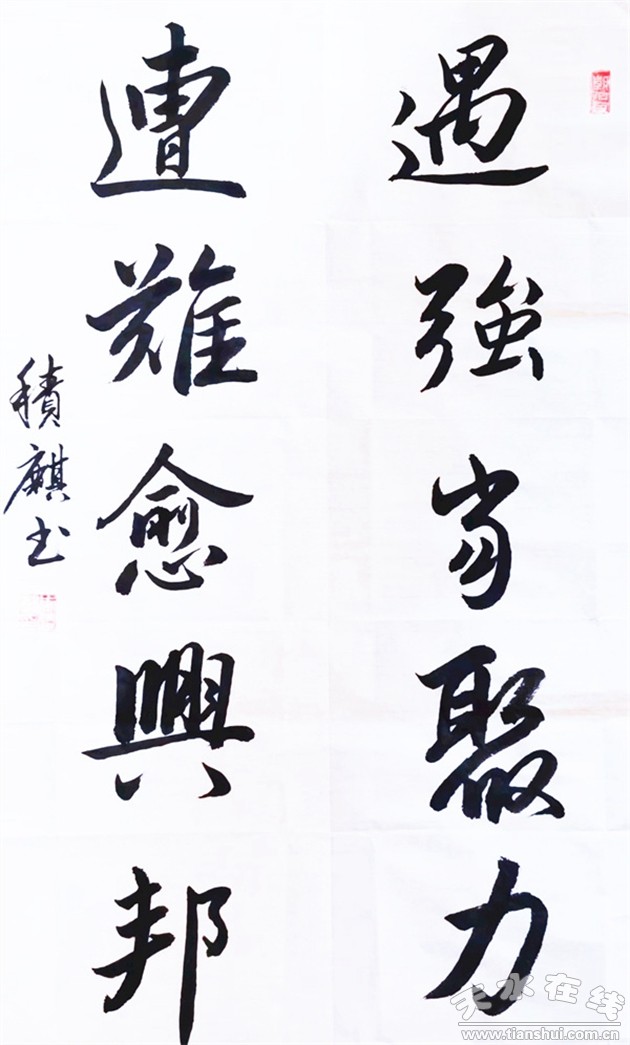 遇強當聚力
遭難愈興邦
積麒书
天水在线
www.tianshui.com.cn